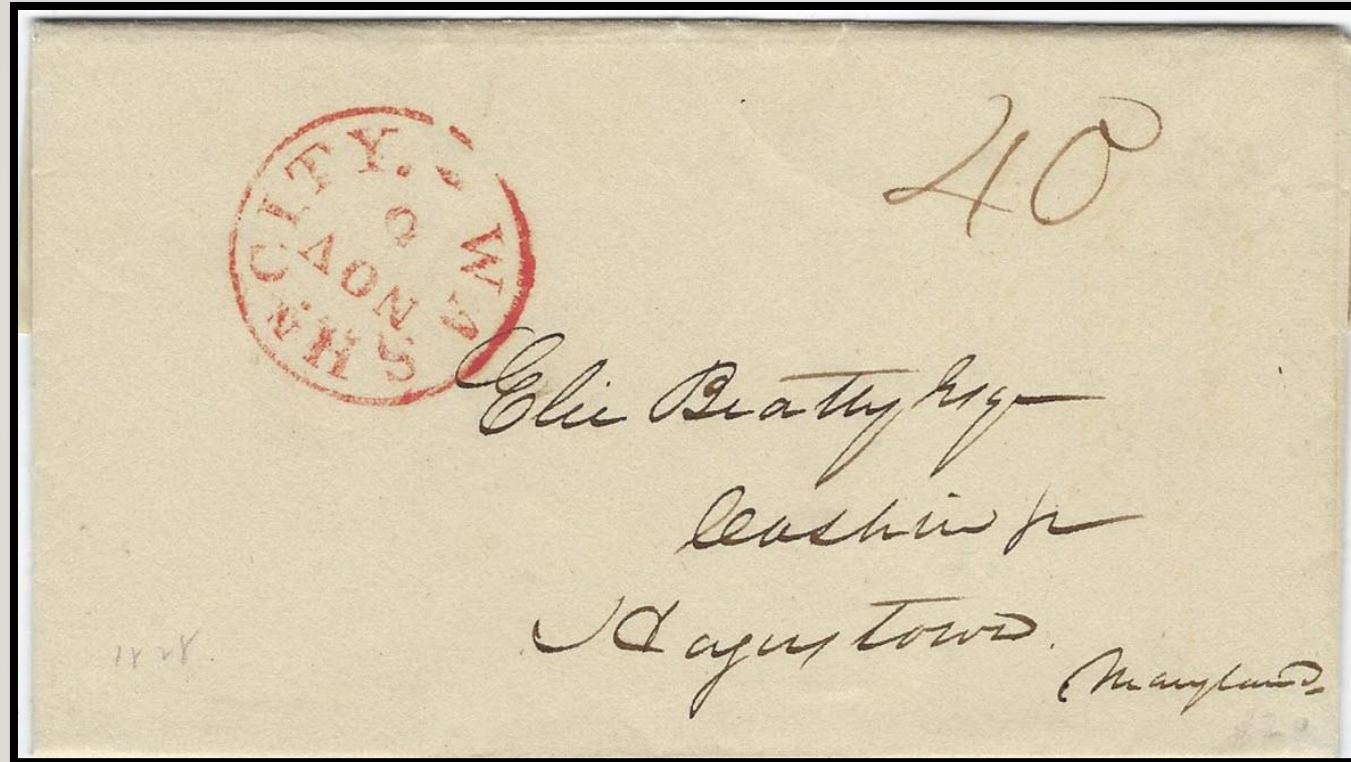 WASHN. CITY.
NOV
40
Elie Beatty Esqr
Cashier &c
Hagerstown.
Maryland.
1828